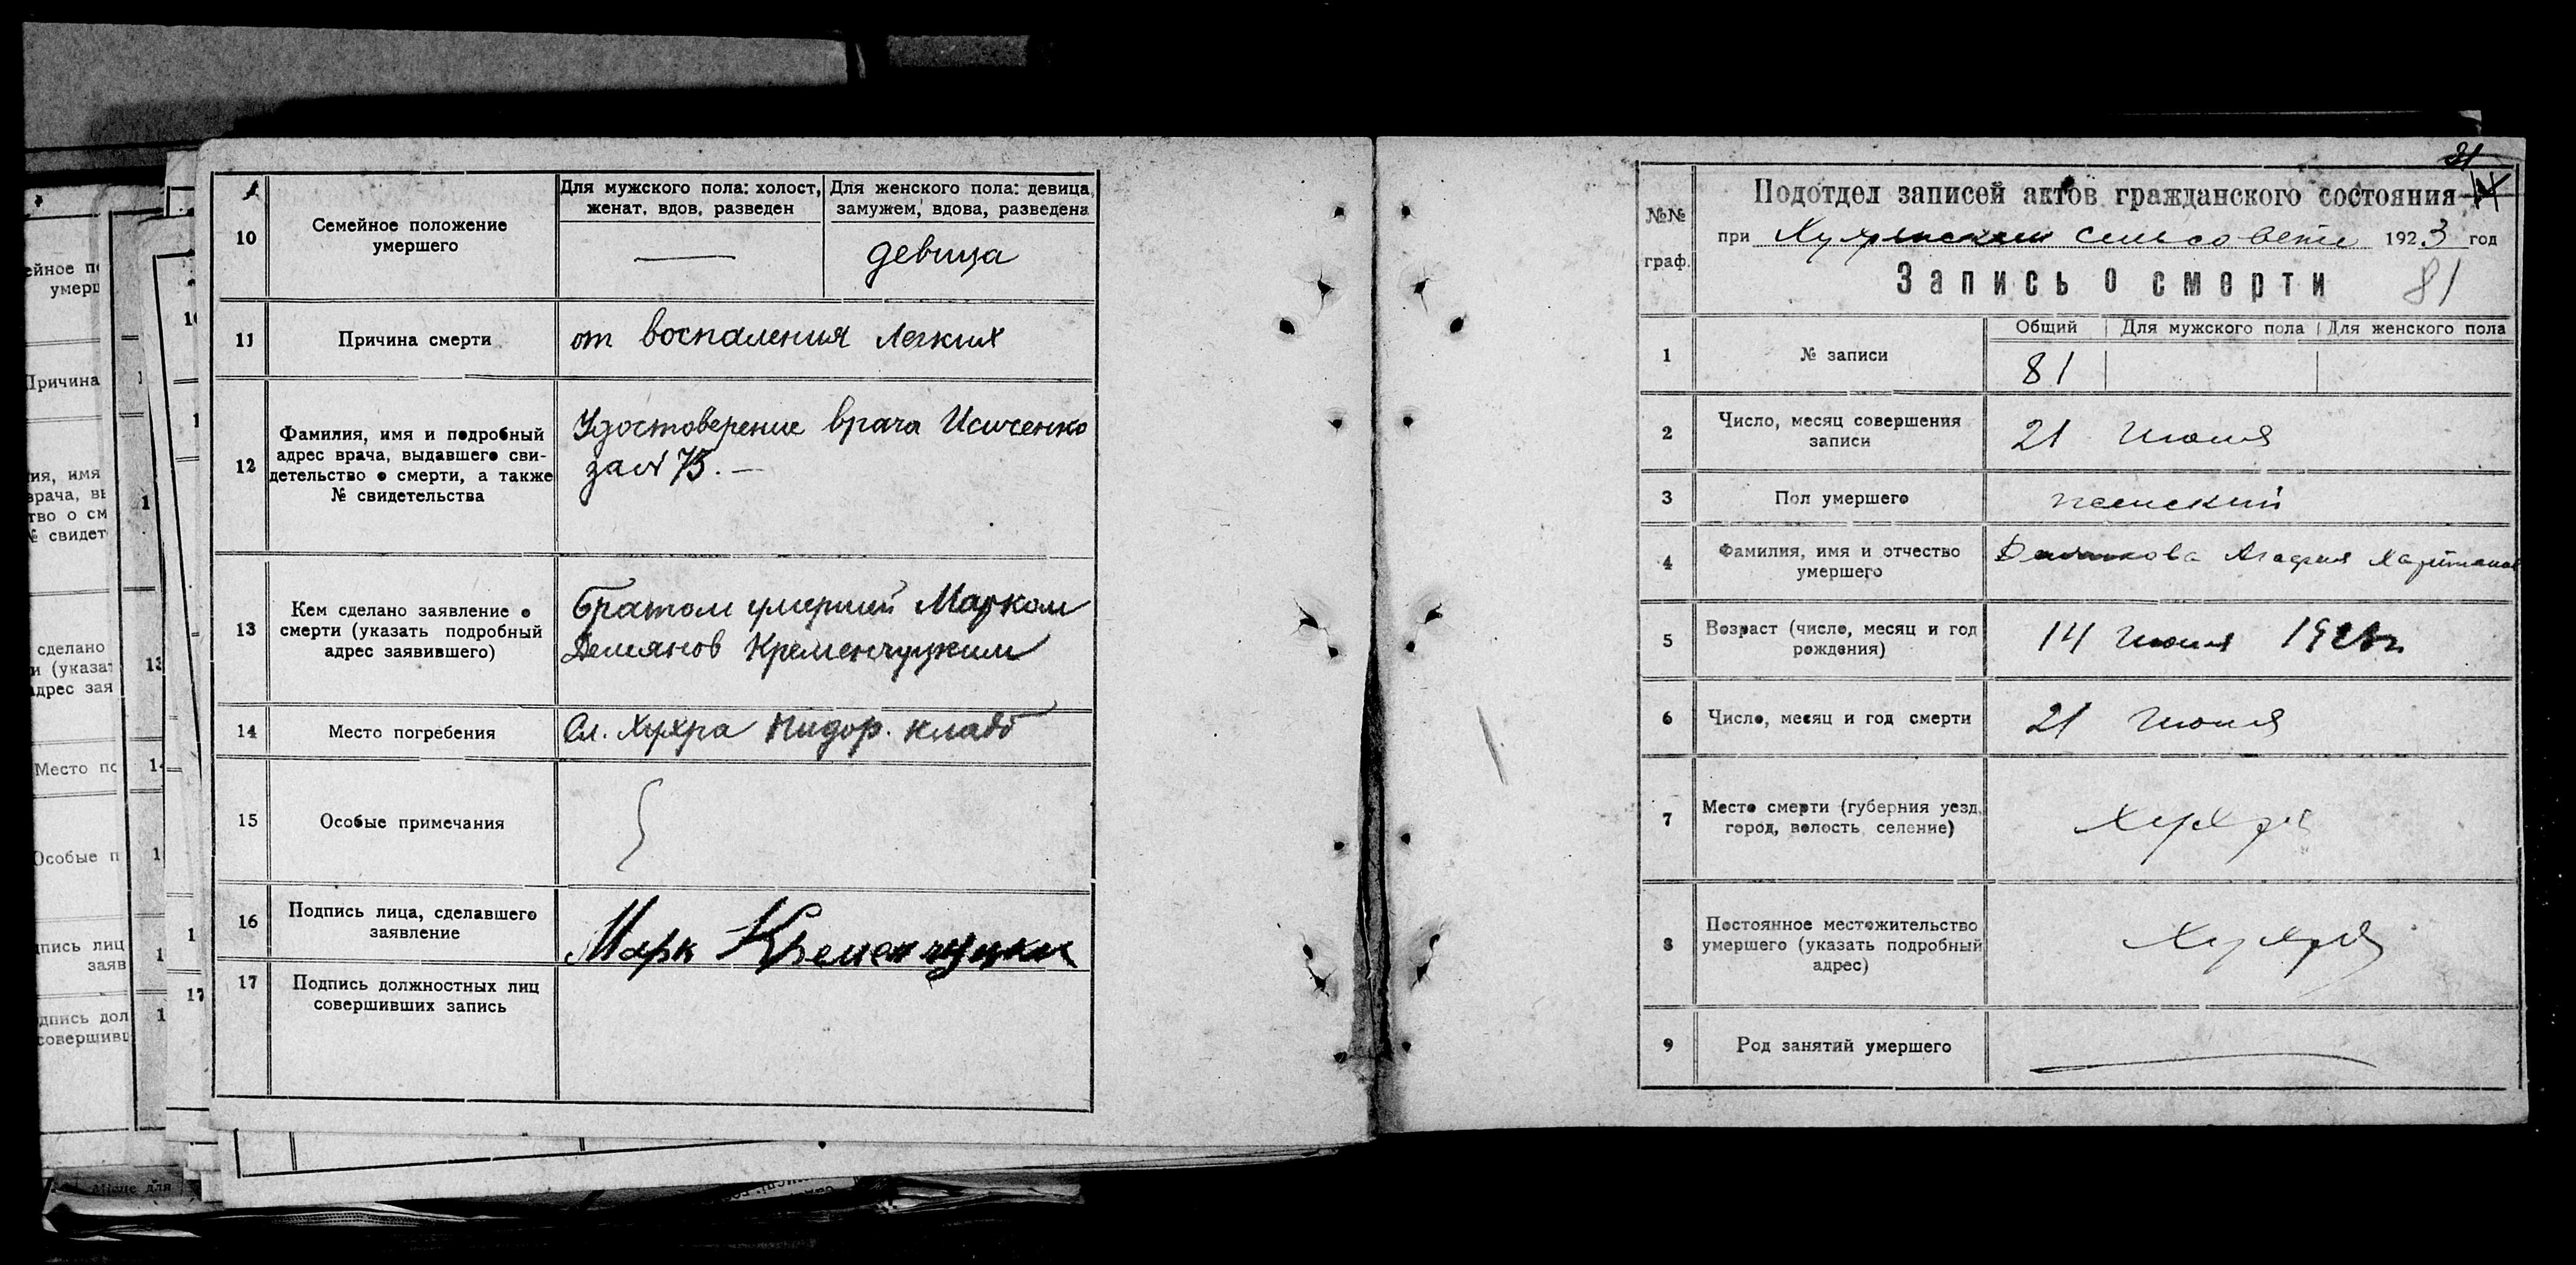 10
Семейное положение
умершего
Для мужского пола: холост,
женат, вдов, разведен
Для женского пола: девица,
замужем, вдова, разведена
девица
11
Причина смерти
от воспаления легких
12
Фамилия, имя и подробный
адрес врача, выдавшего сви-
детельство о смерти, а также
№ свидетельства
Удостоверение врача Исиченко
за № 75. —
13
Кем сделано заявление о
смерти (указать подробный
адрес заявившего)
Братом умершей Марком
Демянов Кременчуцким
14
Место погребения
Сл. Хухра кладб
15
Особые примечания
16
Подпись лица, сделавшего
заявление
Марк Кременчуцки
17
Подпись должностных лиц
совершивших запись
31
№№
граф.
Подотдел записей актов гражданского состояния
при Хухрянском сельсовете 1923 год
Запись о смерти 81
1
№ записи
Общий
Для мужского пола
Для женского пола
81
2
Число, месяц совершения
записи
21 Июня
3
Пол умершего
женский
4
Фамилия, имя и отчество
умершего
Агафия
5
Возраст (число, месяц и год
рождения)
14 Июня
6
Число, месяц и год смерти
21 Июня
7
Место смерти (губерния уезд,
город, волость, селение)
Хухра
8
Постоянное местожительство
умершего (указать подробный
адрес)
Хухра
9
Род занятий умершего